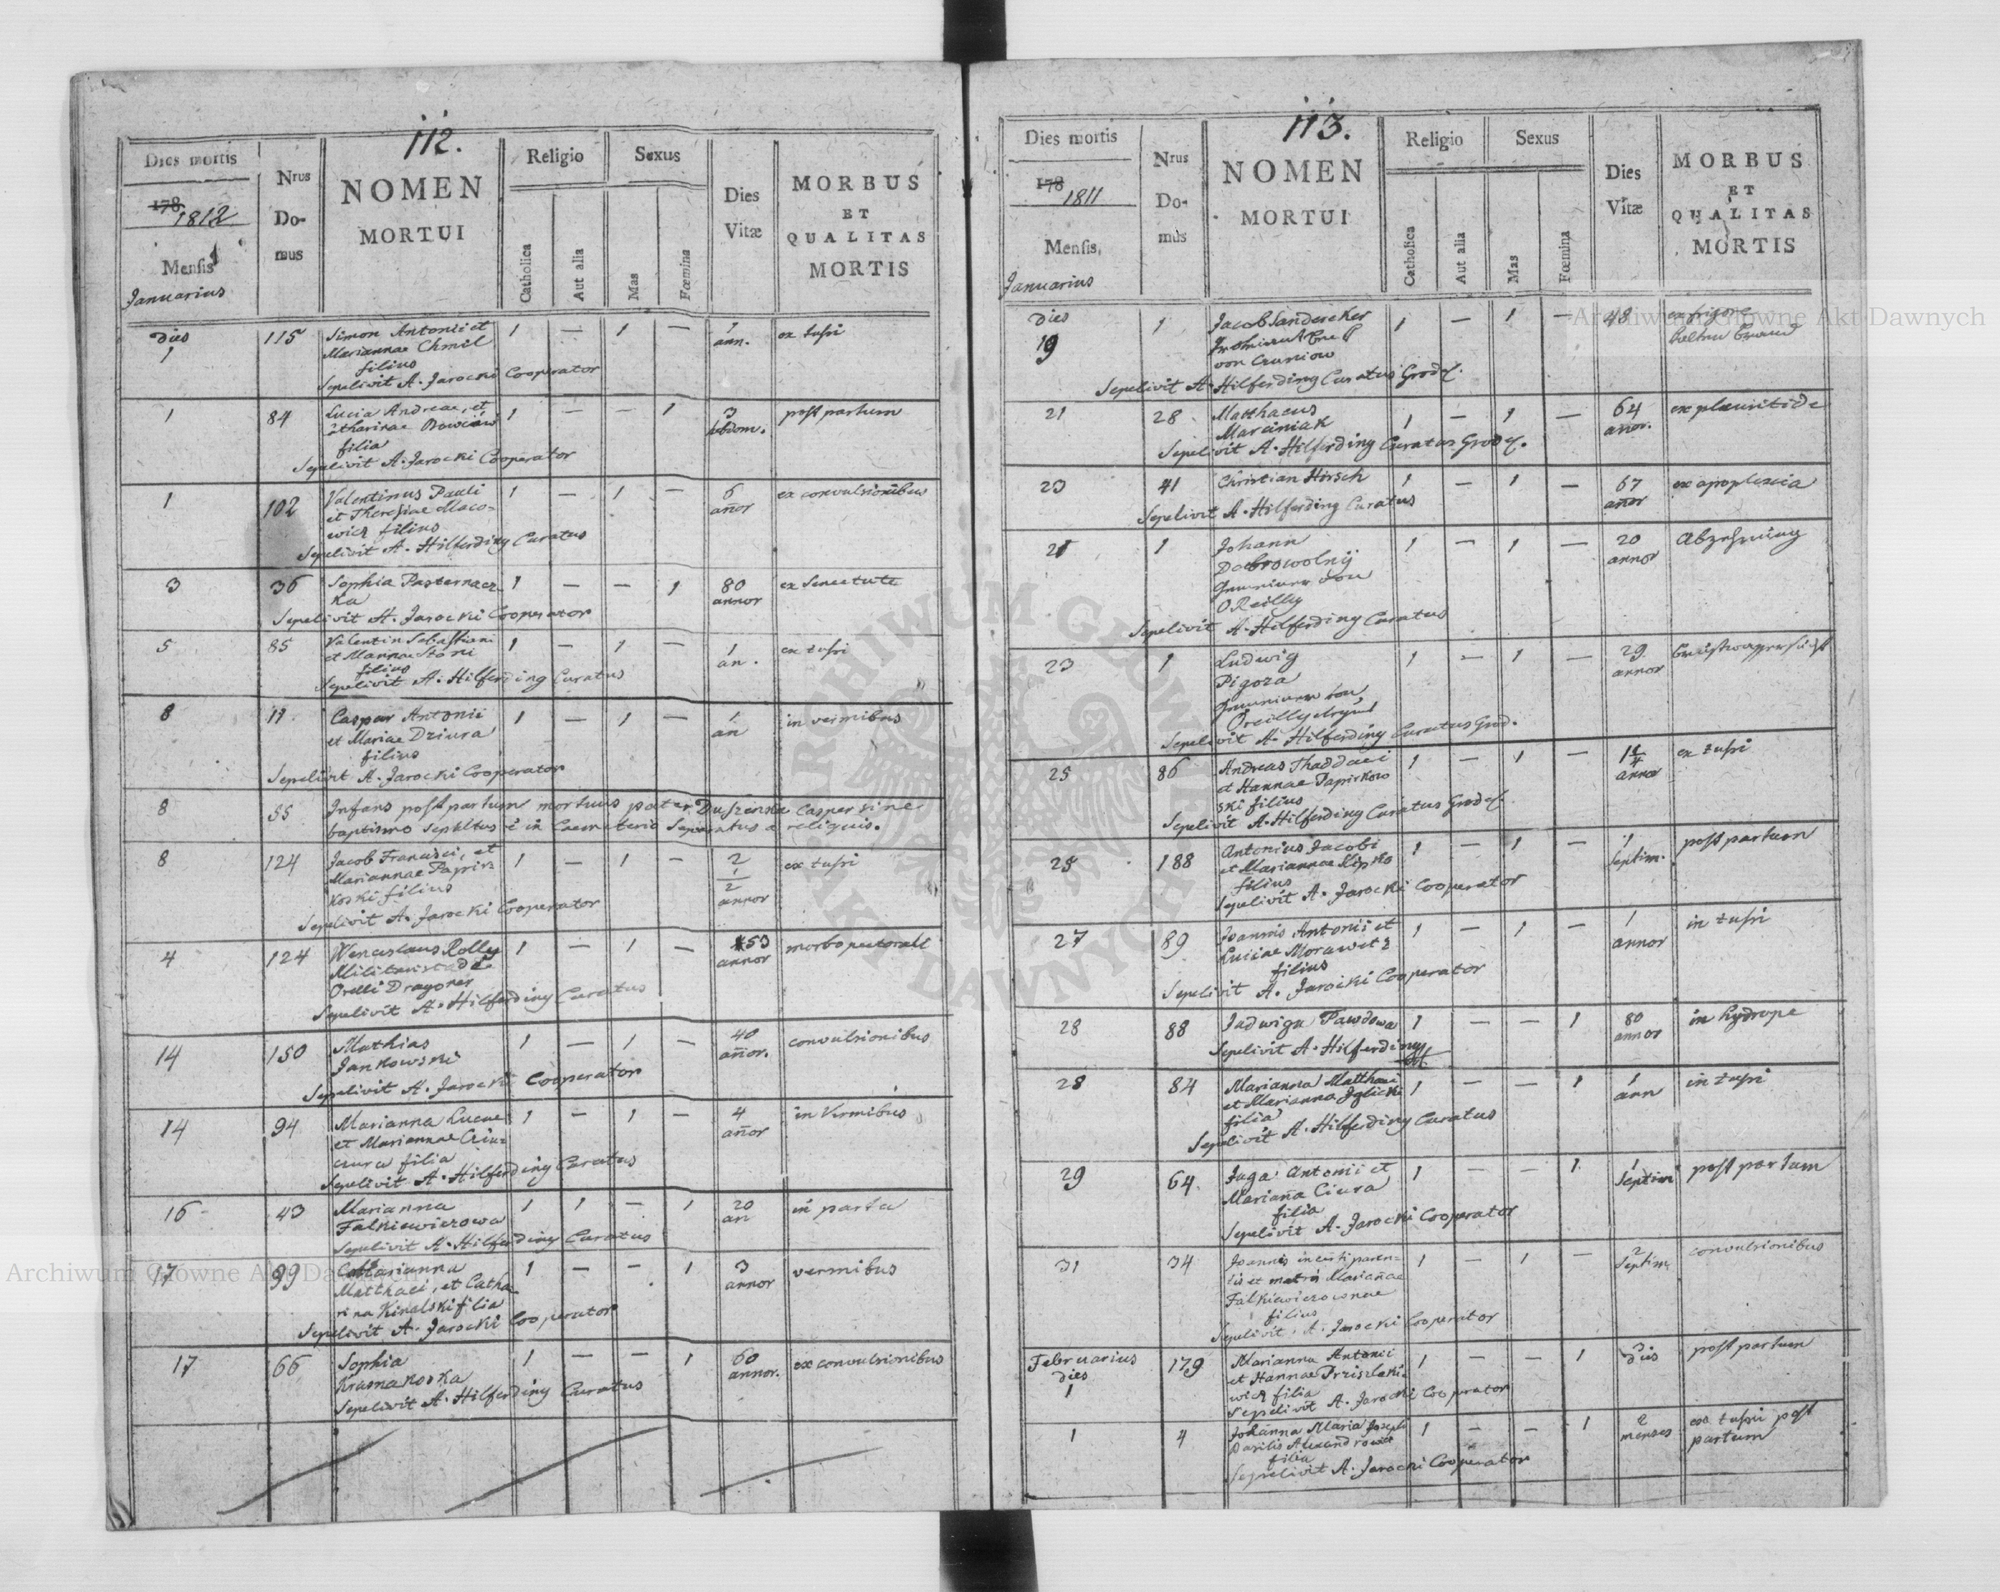 112.
Dies mortis
Nrus
Do-
mus
NOMEN
MORTUI
Religio
Sexus
Catholica
Aut alia
Mas
Fœmina
Dies
Vitæ
MORBUS
ET
QUALITAS
MORTIS
178
1812
Mensis
Januarius
Dies
1
115
Simon Antonii et
Mariannae Chmil
filius
1 — 1 —
1
ann.
ex tussi
Sepelivit A. Jarocki Cooperator
1
84
Lucia Andreae, et
filia
1 — — 1
3
hebdom.
post partum
Sepelivit A. Jarocki Cooperator
1
102
Valentinus Pauli
et Theresiae Maco-
wicz filius
1 — 1 —
6
añor
ex convulsionibus
Sepelivit A. Hilferding Curatus
3
36
Sophia Pasternacz-
ka
1 — — 1
80
annor
ex Senectute
Sepelivit A. Jarocki Cooperator
5
85
Valentin Sebastiani
et Mariae Stani
filius
1 — 1 —
1
an.
ex tussi
Sepelivit A. Hilferding Curatus
8
11
Caspar Antonii
et Mariae Dziura
filius
1 — 1 —
1
an
in vermibus
Sepelivit A. Jarocki Cooperator
8
55
Infans post partum mortuus pater Duszenska Casper sine
baptismo sepultus ē in Caemeterio Separatus a reliquis.
8
124
Jacob Francisci, et
Mariannae Papirz
koski filius
1 — 1 —
2
1
2
annor
ex tussi
Sepelivit A. Jarocki Cooperator
4
124
Wenceslaus Rolly
Orelli Dragoner
1 — 1 —
53
annor
morbo pectorali
Sepelivit A. Hilferding Curatus
14
150
Mathias
Jankowski
1 — 1 —
40
añor.
convulsionibus
Sepelivit A. Jarocki Cooperator
14
94
Marianna Lucae
et Mariannae Ciu-
filia
1 — 1 —
4
añor
in Vermibus
Sepelivit A. Hilferding Curatus
16
43
Marianna
Falkiewiczowa
1 1 — 1
20
an
in partu
Sepelivit A. Hilferding Curatus
17
99
Marianna
Matthaei, et Catha-
rina Kinalski filia
1 — — 1
3
annor
vermibus
Sepelivit A. Jarocki Cooperator
17
66
Sophia
Krasnakoska
1 — — 1
60
annor.
ex convulsionibus
Sepelivit A. Hilferding Curatus
113.
Dies mortis
Nrus
Do-
mus
NOMEN
MORTUI
Religio
Sexus
Catholica
Aut alia
Mas
Fœmina
Dies
Vitæ
MORBUS
ET
QUALITAS
MORTIS
178
1811
Mensis,
Januarius
Dies
19
1
Jacob Sanderecker
1 — 1 —
48
ex frigore
Sepelivit A. Hilferding Curatus Grodz.
21
28
Matthaeus
Marciniak
1 — 1 —
64
annor.
ex pleuritide
Sepelivit A. Hilferding Curatus Grodz.
23
41
Christian Hirsch
1 — 1 —
67
annor
ex apoplexia
Sepelivit A. Hilferding Curatus
21
1
Johann
Dobrowolnÿ
OReilly
1 — 1 —
20
annor
Abzehrung
Sepelivit A. Hilferding Curatus
23
1
Ludwig
Pigoza
1 — 1 —
29
annor
Brustwassersucht
Sepelivit A. Hilferding Curatus Grod.
25
86
Andreas Thaddaei
et Hannae Papirkow
ski filius
1 — 1 —
annor
ex tussi
Sepelivit A. Hilferding Curatus Grodz.
25
188
Antonius Jacobi
et Mariannae Kipko
filius
1 — 1 —
1
Septim.
post partum
Sepelivit A. Jarocki Cooperator
27
89
Joannis Antonii et
Luciae Morawetz
filius
1 — 1 —
1
annor
in tussi
Sepelivit A. Jarocki Cooperator
28
88
Jadwiga Pawdowa
1 — — 1
80
annor
in hydrope
Sepelivit A. Hilferding
28
84
Marianna Matthaei
et Marianna Iglicki
filia
1 — — 1
1
ann
in tussi
Sepelivit A. Hilferding Curatus
29
64.
Jaga Antonii et
Mariaña Ciura
filia
1 — — 1
1
Septim
post partum
Sepelivit A. Jarocki Cooperator
31
34
Joannis incerti paren-
tis et matris Mariañae
Falkiewiczownae
filius
1 — 1 —
2
Septim.
convulsionibus
Sepelivit A. Jarocki Cooperator
Februarius
dies
1
179
Marianna Antonii
et Hannae Przislaki-
wicz filia
1 — — 1
3
dies
post partum
Sepelivit A. Jarocki Cooperator
1
4
Johanna Maria Joseph
Basilis Alexandrowicz
filia
1 — — 1
2
menses
ex tussi post
partum
Sepelivit A. Jarocki Cooperator
Archiwum Główne Akt Dawnych
Archiwum Główne Akt Dawnych
ARCHIWUM GŁÓWNE
AKT DAWNYCH